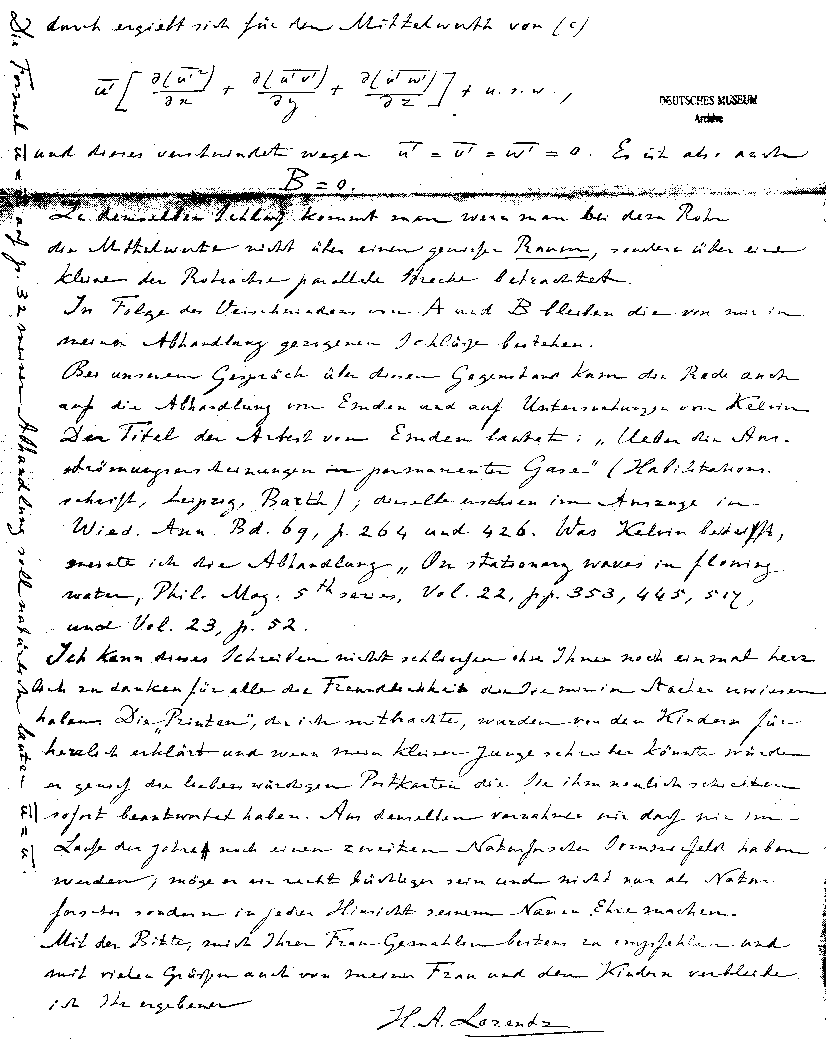 durch ergiebt sich für den Mittelwerth von (c)
u̅' [ ∂(u̅'²)/∂x + ∂(u̅'v̅')/∂y + ∂(u̅'w̅')/∂z ] + u. s. w.,
DEUTSCHES MUSEUM
Archiv
und dieses verschwindet wegen u̅' = v̅' = w̅' = 0. Es ist also auch
B = 0.
Zu demselben Schluß kommt man wenn man bei dem Rohr
die Mittelwerte nicht über einen gewissen Raum, sondern über eine
kleine der Rohrachse parallele Strecke betrachtet.
In Folge des Verschwindens von A und B bleiben die von mir in
meiner Abhandlung gezogenen Schlüße bestehen.
Bei unserem Gespräch über diesen Gegenstand kam die Rede auch
auf die Abhandlung von Emden und auf Untersuchungen von Kelvin
Der Titel der Arbeit von Emden lautet: „Ueber die Aus-
strömungserscheinungen permanenter Gase" (Habilitations-
schrift, Leipzig, Barth); dieselbe erschien im Auszuge in
Wied. Ann. Bd. 69, p. 264 und 426. Was Kelvin betrifft,
meinte ich die Abhandlung „On stationary waves in flowing
water, Phil. Mag. 5th series, Vol. 22, pp. 353, 445, 517,
und Vol. 23, p. 52.
Ich kann dieses Schreiben nicht schliessen ohne Ihnen noch einmal herz
lich zu danken für alle die Freundlichkeit die Sie mir in Aachen erwiesen
haben. Die „Printen", die ich mitbrachte, wurden von den Kindern für
herrlich erklärt und wenn mein kleiner Junge schreiben könnte würde
er gewiß die liebenswürdigen Postkarten die Sie ihm neulich schickten
sofort beantwortet haben. Aus denselben vernahmen wir daß wir im
Laufe des Jahres noch einen zweiten Naturforscher Sommerfeld haben
werden; möge er ein recht tüchtiger sein und nicht nur als Natur-
forscher sondern in jeder Hinsicht seinem Namen Ehre machen.
Mit der Bitte, mich Ihrer Frau Gemahlin bestens zu empfehlen und
mit vielen Grüßen auch von meiner Frau und den Kindern verbleibe
ich Ihr ergebener
H. A. Lorentz
Die Formel auf p. 32 meiner Abhandlung soll natürlich lauten u̿ = u̅.